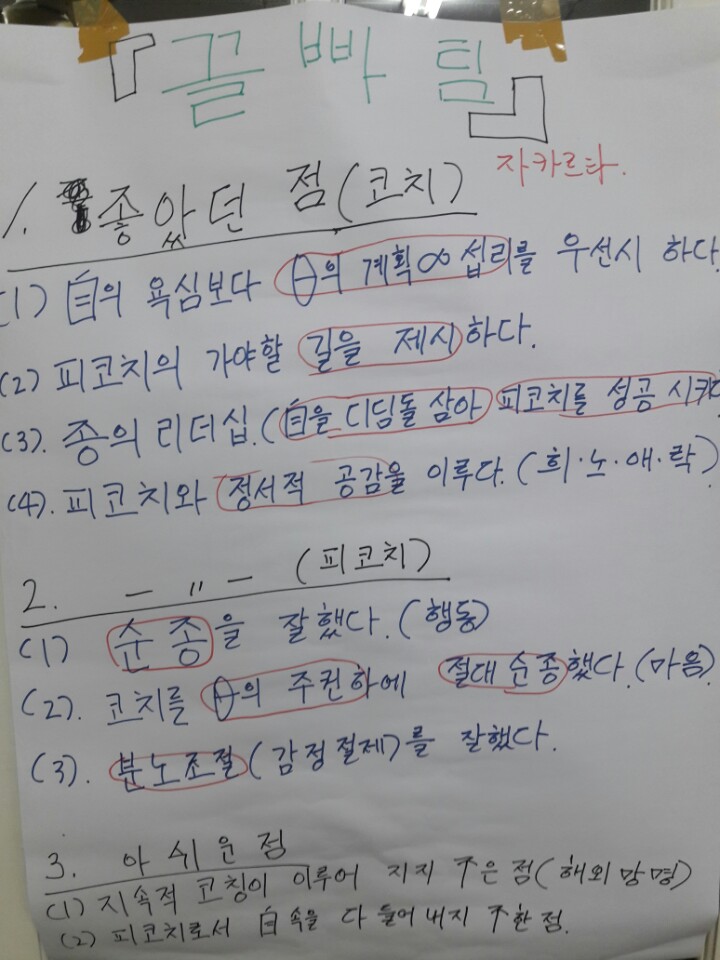 『꼴빠팀』
자카르타.
1. 좋았던 점(코치)
(1) 自의 욕심보다 θ의 계획∞섭리를 우선시 하다
(2) 피코치의 가야할 길을 제시하다.
(3). 종의 리더십.(自을 디딤돌 삼아 피코치를 성공 시키다
(4). 피코치와 정서적 공감을 이루다.(희·노·애·락)
2. — 〃 — (피코치)
(1) 순종을 잘했다.(행동)
(2). 코치를 θ의 주권하에 절대순종했다.(마음)
(3). 분노조절(감정절제)를 잘했다.
3. 아쉬운점
(1) 지속적 코칭이 이루어 지지 不은 점(해외망명)
(2) 피코치로서 自속을 다 들어내지 不한점.